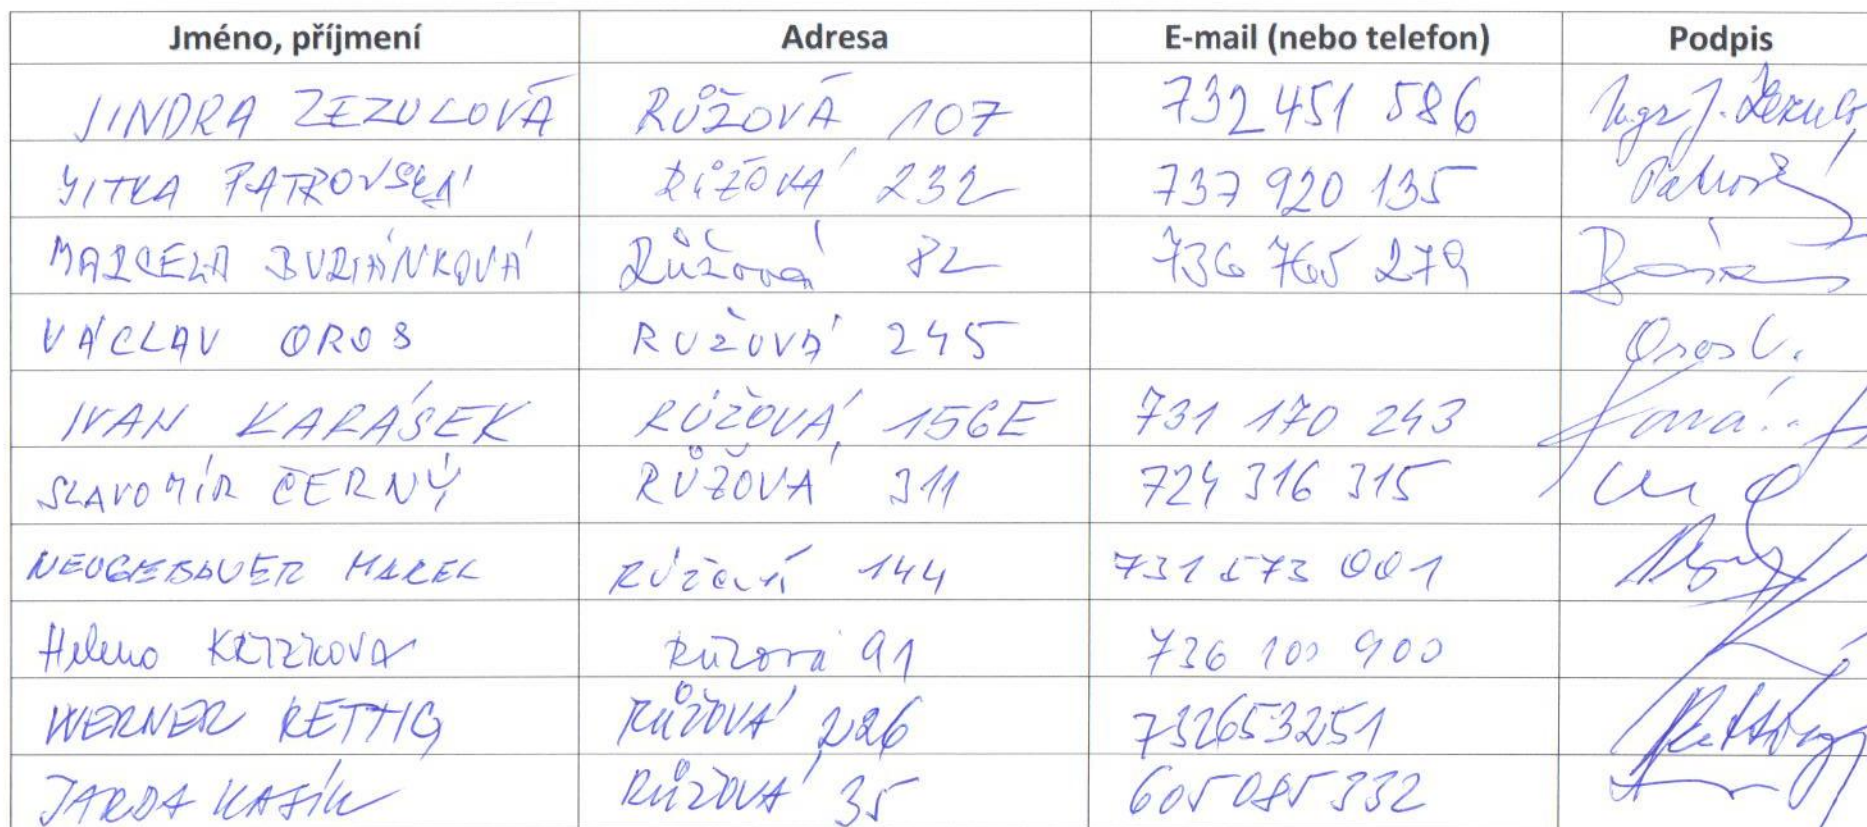 Jméno, příjmení Adresa E-mail (nebo telefon) Podpis
JINDRA ZEZULOVÁ RŮŽOVÁ 107 732 451 586 Mgr J. Zezulo
JITKA PATROVSKÁ RŮŽOVÁ 232 737 920 135
MARCELA BURIÁNKOVÁ Růžová 82 736 765 279
VÁCLAV OROS RUŽOVÁ 245 Oros V.
IVAN KARÁSEK RŮŽOVÁ 156E 731 170 243
SLAVOMÍR ČERNÝ RŮŽOVÁ 311 724 316 315
NEUGEBAUER MAREK RŮŽOVÁ 144 731 573 001
Helena KŘÍŽKOVA Růžová 91 736 100 900
WERNER RETTIG RŮŽOVÁ 226 732653251 Rettig
JARDA KAFÍK RŮŽOVÁ 35 605085332